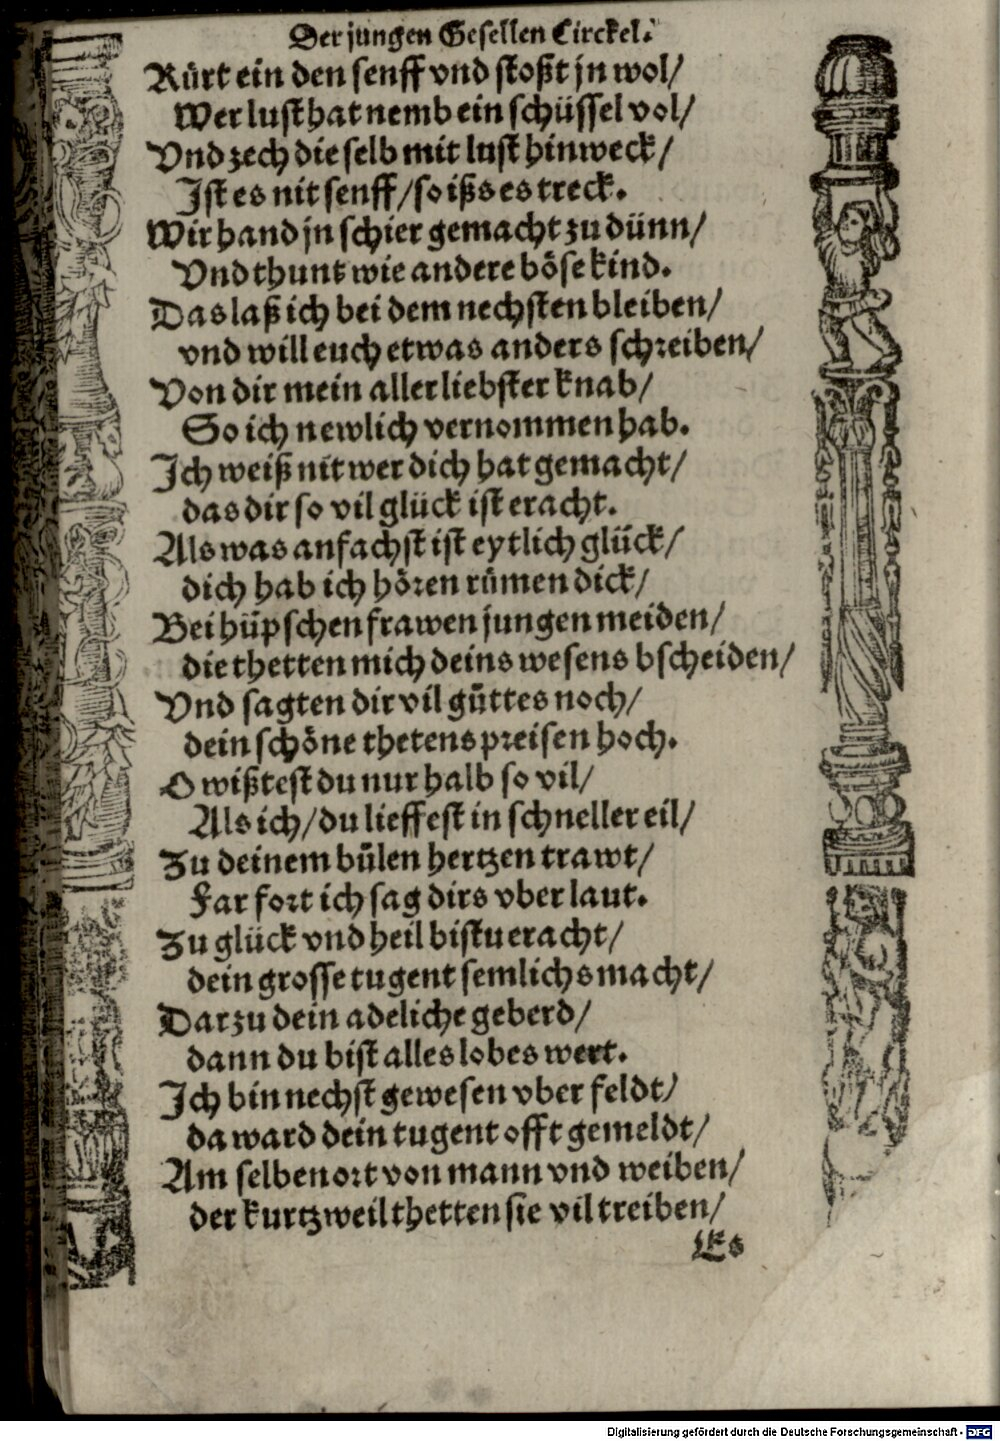 Der jungen Gesellen Circkel.
Rürt ein den senff vnd stoßt jn wol/
Wer lust hat nemb ein schüssel vol/
Vnd zech die selb mit lust hinweck/
Ist es nit senff/so ißs es treck.
Wir hand jn schier gemacht zu dünn/
Vnd thunt wie andere böse kind.
Das laß ich bei dem nechsten bleiben/
vnd will euch etwas anders schreiben/
Von dir mein allerliebster knab/
So ich newlich vernommen hab.
Ich weiß nit wer dich hat gemacht/
das dir so vil glück ist eracht.
Als was anfachst ist eytlich glück/
dich hab ich hören rümen dick/
Bei hüpschen frawen jungen meiden/
die thetten mich deins wesens bscheiden/
Vnd sagten dir vil gůttes noch/
dein schöne thetens preisen hoch.
O wißtest du nur halb so vil/
Als ich/du lieffest in schneller eil/
Zu deinem bůlen hertzen trawt/
Far fort ich sag dirs vber laut.
Zu glück vnd heil bistu eracht/
dein grosse tugent semlichs macht/
Darzu dein adeliche geberd/
dann du bist alles lobes wert.
Ich bin nechst gewesen vber feldt/
da ward dein tugent offt gemeldt/
Am selben ort von mann vnd weiben/
der kurtzweil thetten sie vil treiben/
Es
Digitalisierung gefördert durch die Deutsche Forschungsgemeinschaft - DFG